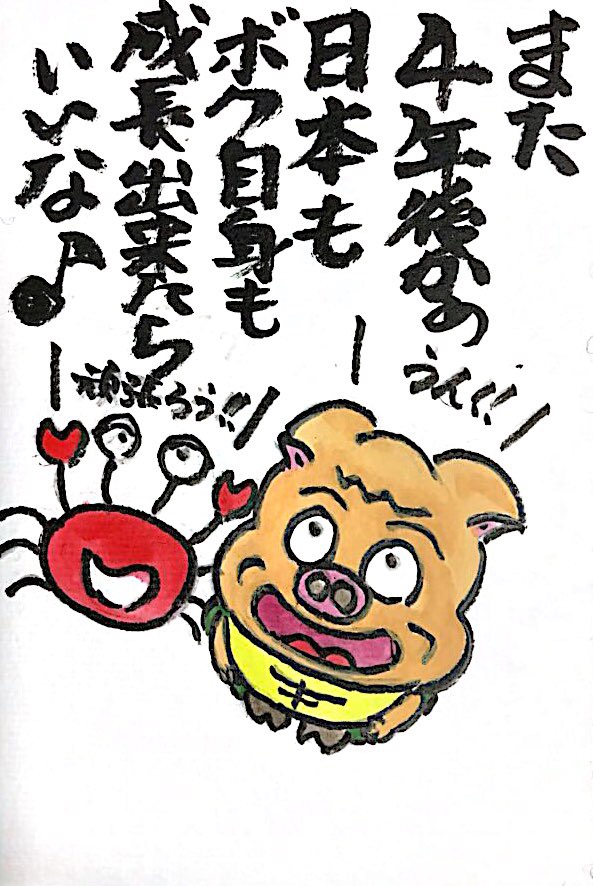 また
4年後かの
日本も
ボク自身も
成長出来たら
いいな♪
うん!!
頑張ろう!!
キ